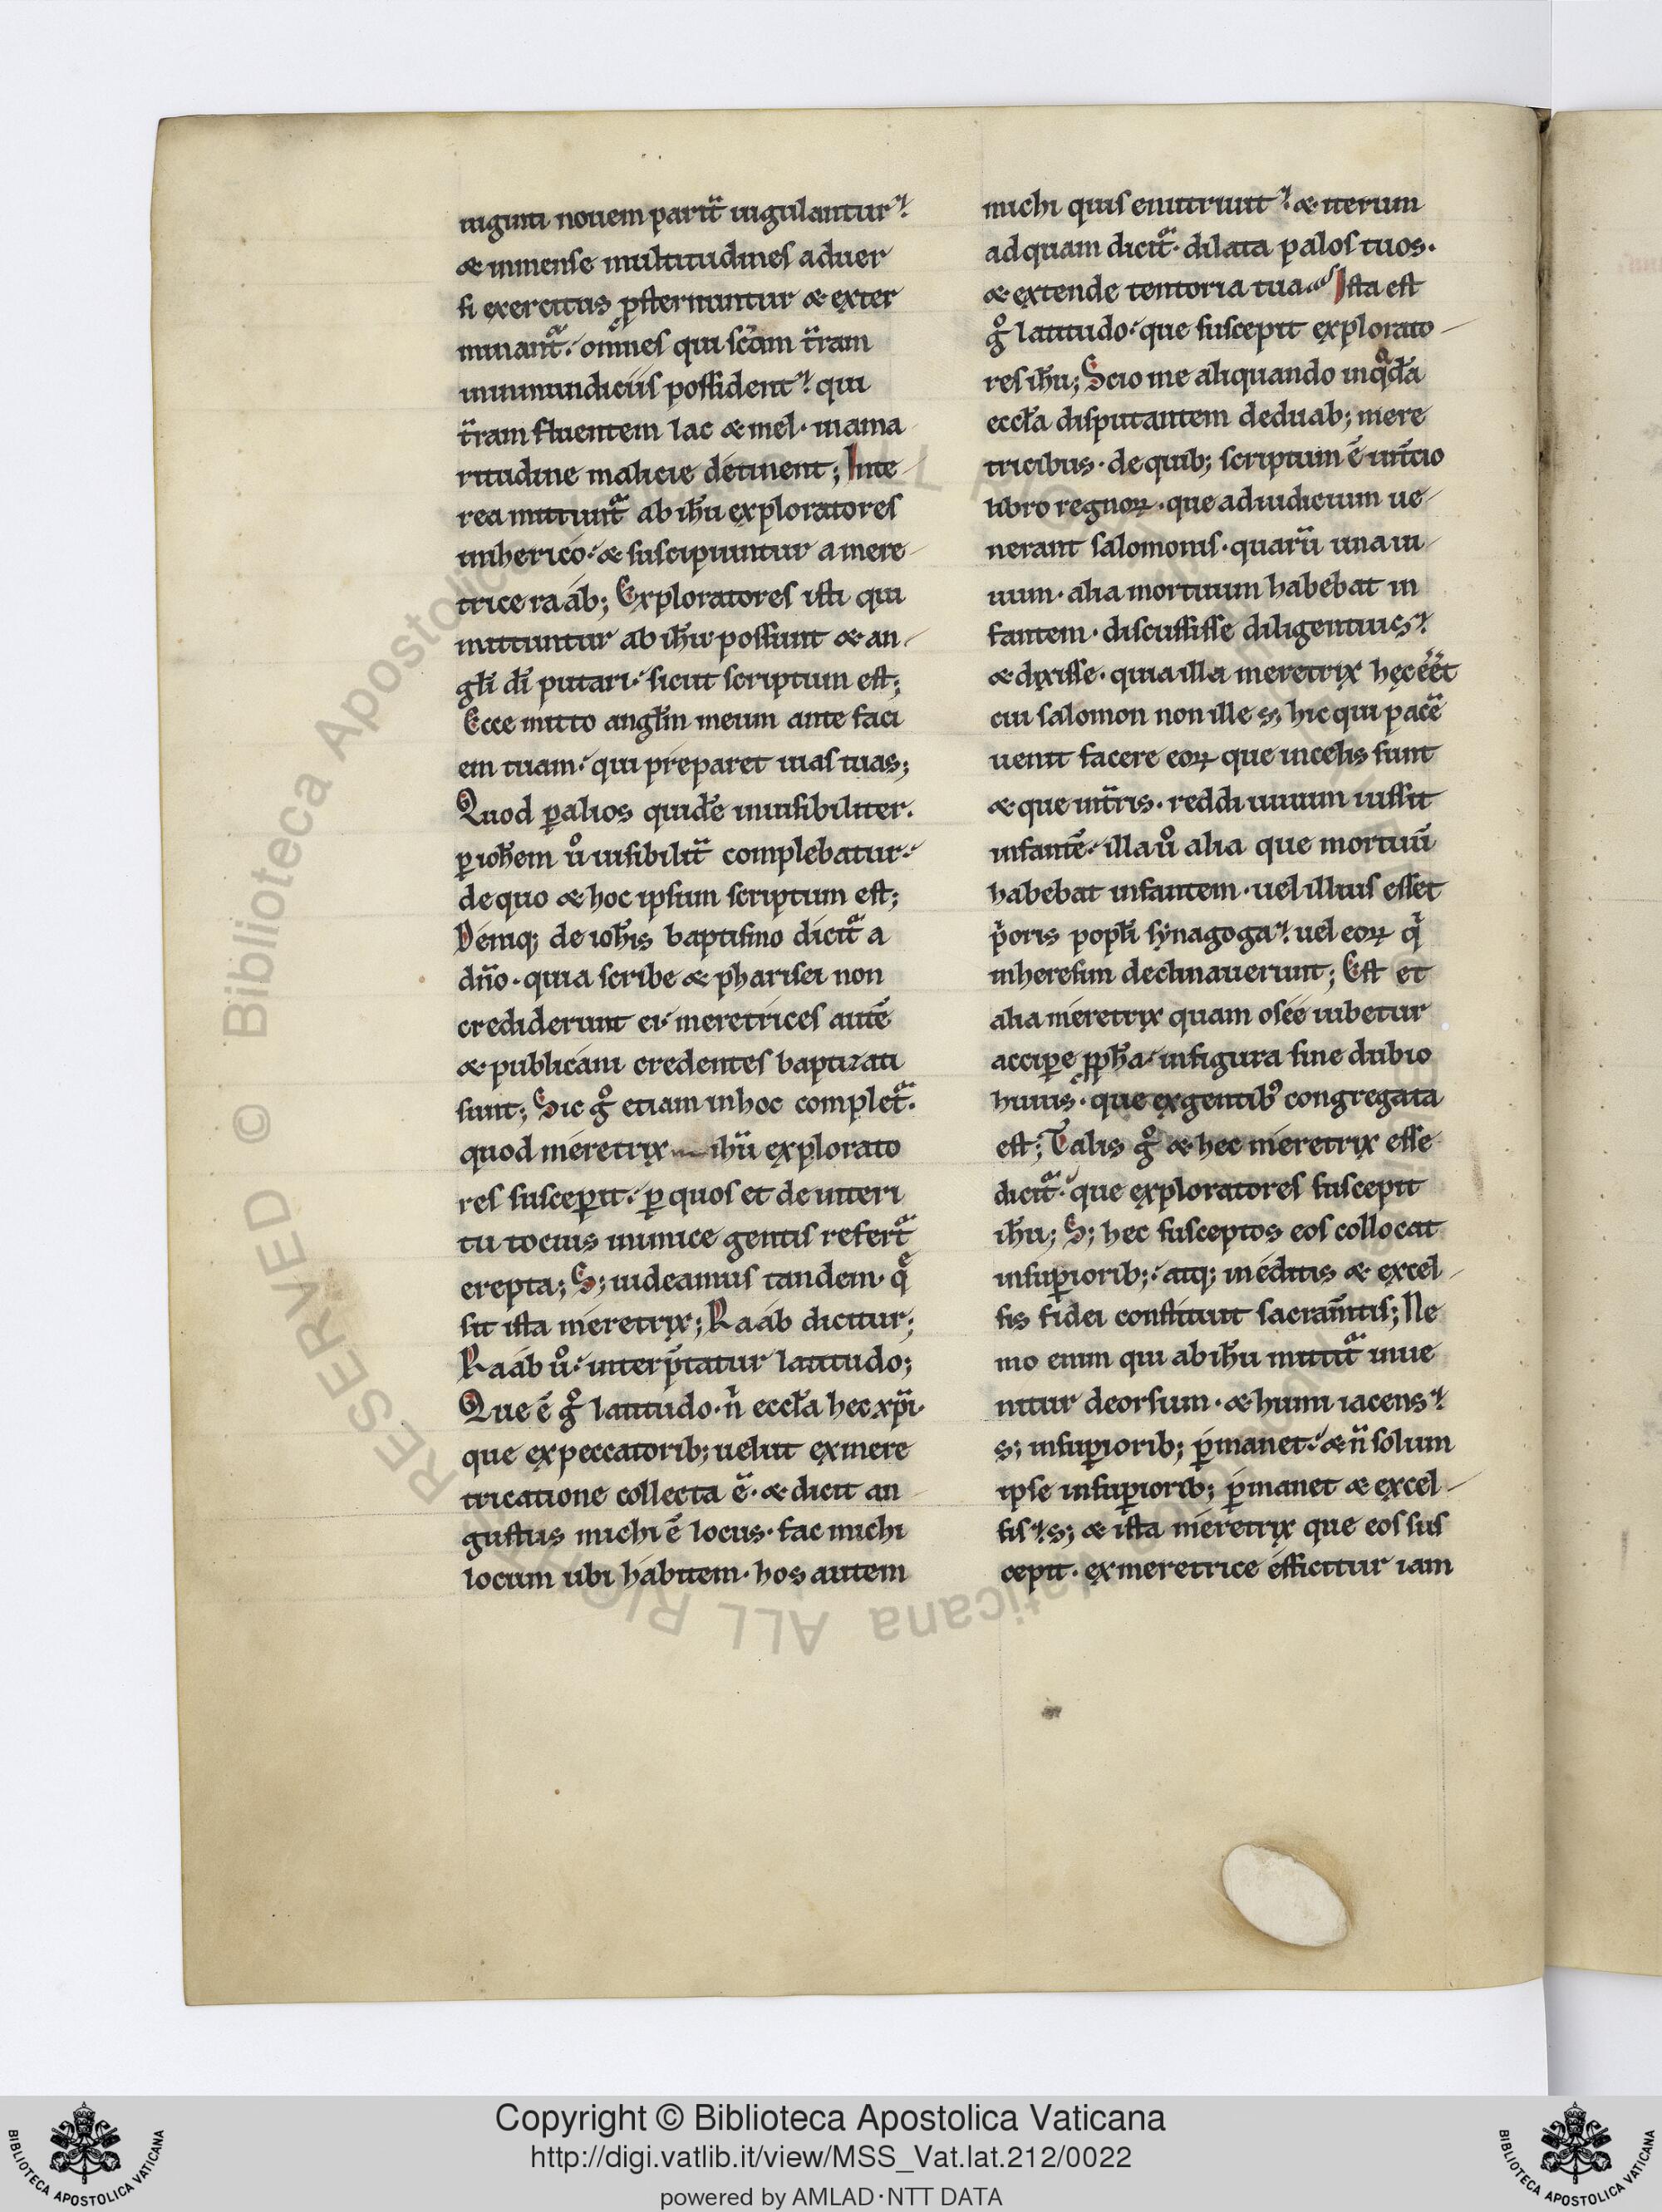 uiginti nouem parit̃ iugulantur
& inmense multitudines aduer
si exercitus ꝓsternuntur & exter
minant̃. omnes qui sc̃am t̃ram
inmundiciis possident qui
t̃ram fluentem lac & mel. in ama
ritudine malicie detinent; Inte
rea mittunt̃ ab ih̃u exploratores
in hierico. & suscipiuntur a mere
trice raab; Exploratores isti qui
mittuntur ab ih̃u possunt & an
gl̃i dĩ putari. sicut scriptum est;
Ecce mitto angl̃m meum ante faci
em tuam. qui preparet uias tuas;
Quod ꝑ alios quidẽ inuisibiliter.
ꝑ ioh̃em uͦ uisibilit̃ complebatur.
de quo & hoc ipsum scriptum est;
Deniq; de ioh̃is baptismo dicit̃ a
dño. quia scribe & pharisei non
crediderunt ei. meretrices autẽ
& publicani credentes baptizati
sunt; Sic gͦ etiam in hoc complet̃.
quod meretrix ih̃u explorato
res susceꝑit. ꝑ quos et de interi
tu tocius inimice gentis refert̃
erepta; S; uideamus tandem. q̃
sit ista meretrix; Raab dicitur;
Raab uͦ. interp̃tatur latitudo;
Que ẽ gͦ latitudo. nͥ eccl̃a hec xp̃i.
que ex peccatorib; uelut ex mere
tricatione collecta ẽ. & dicit an
gustus michi ẽ locus. fac michi
locum ubi habitem. hos autem
michi quis enutriuit & iterum
ad quam dicit̃. dilata palos tuos.
& extende tentoria tua Ista est
gͦ latitudo. que suscepit explorato
res ih̃u; Scio me aliquando in q̃dã
eccl̃a disputantem de duab; mere
tricibus. de quib; scriptum ẽ in t̃cio
libro regnoꝝ. que ad iudicium ue
nerant salomonis. quarũ una ui
uum. alia mortuum habebat in
fantem. discussisse diligentius
& dixisse. quia illa meretrix hec eẽt
cui salomon non ille s; hic qui pacẽ
uenit facere eoꝝ que in celis sunt
& que in t̃ris. reddi uiuum iussit
infantẽ. illa uͦ alia que mortuũ
habebat infantem. uel illius esset
pͥoris popl̃i synagoga. uel eoꝝ qͥ
in heresim declinauerunt; Est et
alia meretrix quam osee iubetur
acciꝑe ꝓph̃a. in figura sine dubio
huius. que ex gentibꝰ congregata
est; Talis gͦ & hec meretrix esse
dicit̃. que exploratores suscepit
ih̃u; S; hec susceptos eos collocat
in suꝑiorib; atq; in editis & excel
sis fidei constituit sacram̃tis; Ne
mo enim qui ab ih̃u mittit̃ inue
nitur deorsum. & humi iacens
s; in suꝑiorib; ꝑmanet. & ñ solum
ipse in suꝑiorib; ꝑmanet & excel
sis s; & ista meretrix que eos sus
cepit. ex meretrice efficitur iam
Copyright © Biblioteca Apostolica Vaticana
http://digi.vatlib.it/view/MSS_Vat.lat.212/0022
powered by AMLAD·NTT DATA